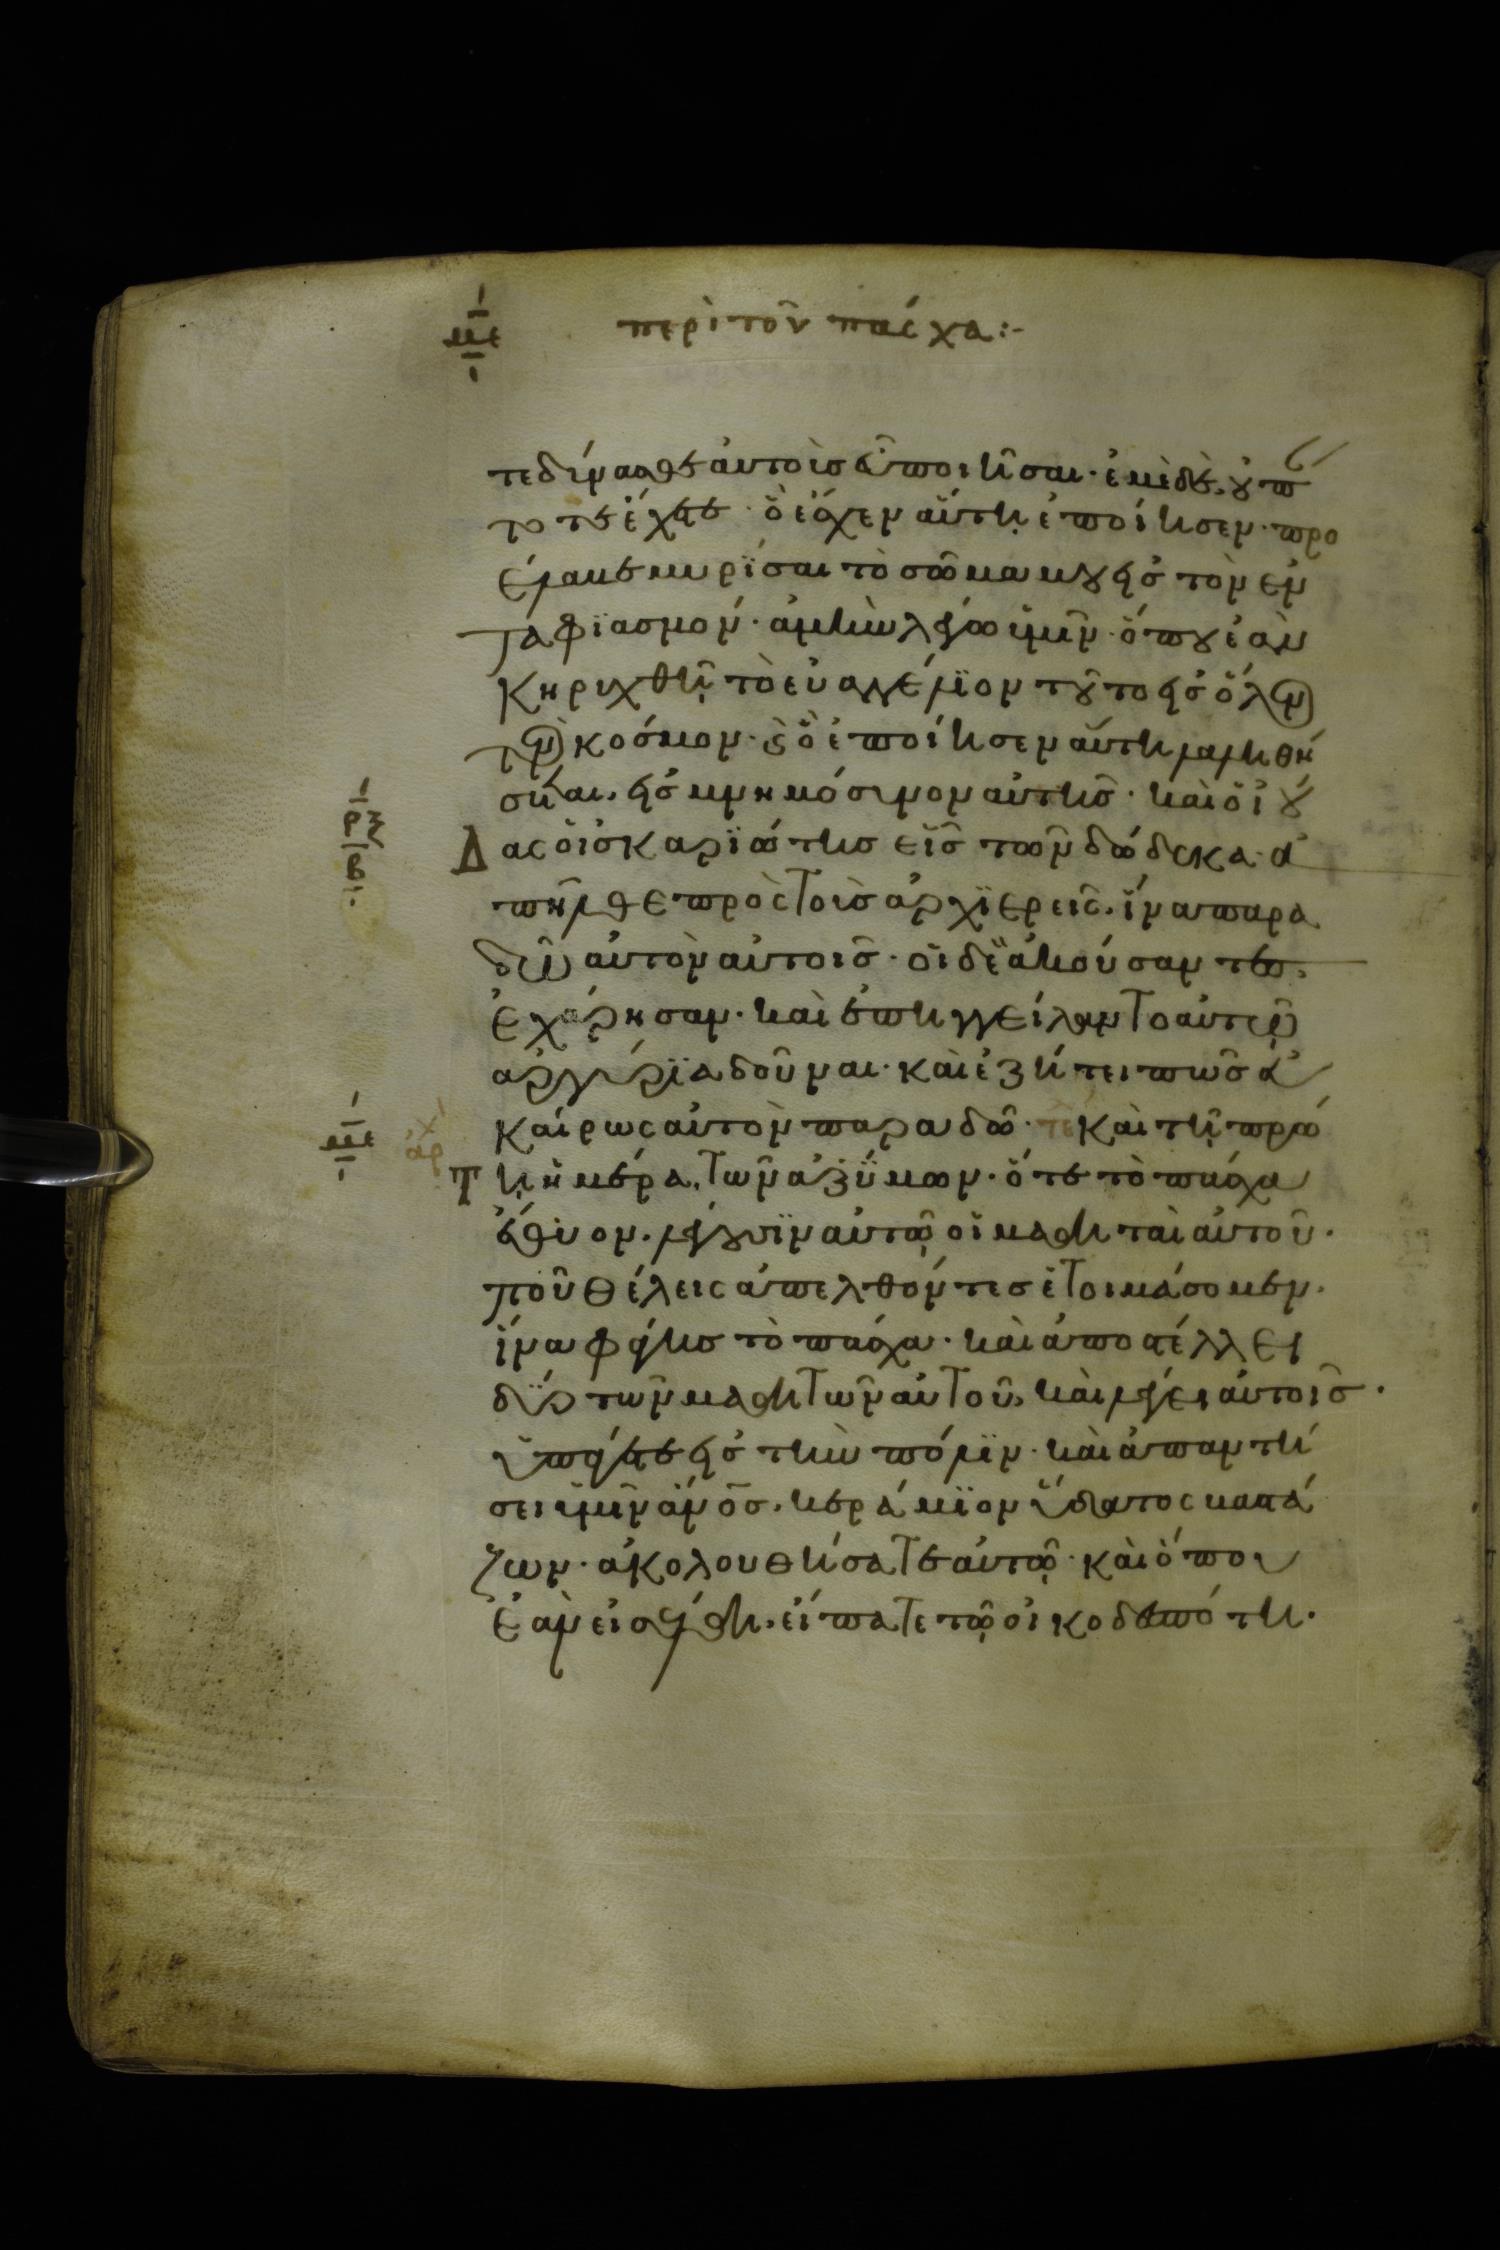 με περὶ τοῦ πάσχα :-
τε δύνασθε αὐτοὶς εὖ ποιῆσαι· ἐμὲ δὲ, οὐ πάν
τοτε ἔχετε· ὃ ἔσχεν αὕτη ἐποίησεν· προ
έλαβε μυρΐσαι τὸ σῶμα μου εἰσ τὸν ἐν
ταφϊασμόν· ἀμὴν λέγω ὑμῖν· ὅπου ἐὰν
κηρυχθῆ τὸ εὐαγγέλϊον τοῦτο εἰσ ὅλον
τὸν κόσμον· καὶ ὃ ἐποίησεν αὕτη λαληθή
σεται, εἰσ μνημόσυνον αὐτῆσ· καὶ ὁ ἰού
ρξ β
δας ὁ ἰσκαρϊώτησ εἷσ τῶν δώδεκα· ἀ
πῆλθε πρὸς τοὶσ ἀρχϊερεῖς, ἵνα παρα
δῶ αὐτὸν αὐτοῖσ· οἱ δὲ ἀκούσαντεσ,
ἐχάρησαν· καὶ ἐπηγγείλαντο αὐτῶ
ἀργύρϊα δοῦναι· καὶ ἐζήτει πῶσ εὐ
καίρως αὐτὸν παραδῶ· τε καὶ τῆ πρώ
με ἀρχ
τη ἡμέρα, τῶν ἀζύμων· ὅτε τὸ πάσχα
ἔθυον, λέγουσϊν αὐτῶ οἱ μαθηταὶ αὐτοῦ·
ποῦ θέλεις ἀπελθόντεσ ἑτοιμάσομεν·
ἵνα φάγησ τὸ πάσχα· καὶ ἀποστέλλει
δύο τῶν μαθητῶν αὐτοῦ, καὶ λέγει αὐτοῖσ·
ὑπάγετε εἰσ τὴν πόλϊν· καὶ ἀπαντή
σει ὑμῖν ἄνοσ, κεράμϊον ὕδατος βαστά
ζων· ἀκολουθήσατε αὐτῶ· καὶ ὅπου
ἐὰν εἰσέλθη, εἴπατε τῶ οἰκοδεσπότη·